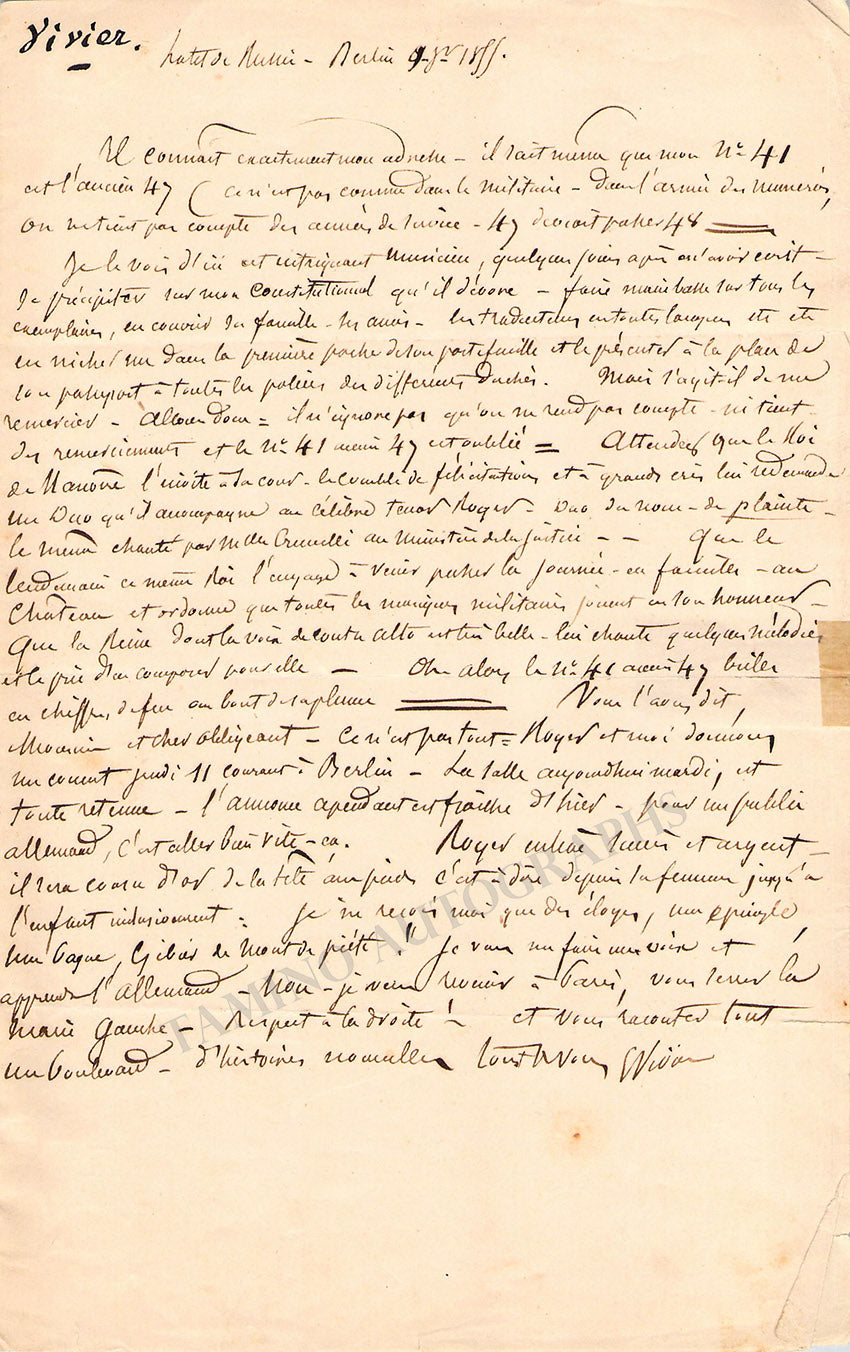 Vivier.
hotel de Russie - Berlin 9 8bre 1855.
Il connait exactement mon adresse - il sait même que mon No 41
est l'ancien 47 (ce n'est pas comme dans le militaire - dans l'armée des numéros,
on ne tient pas compte des années de service - 47 devrait passer 48
Je le vois d'ici cet intriguant musicien, quelques jours après m'avoir écrit -
se précipiter sur mon Constitutionnel qu'il dévore - faire main basse sur tous les
exemplaires, en couvrir sa famille - ses amis - les traducteurs en toutes langues etc etc
en nicher un dans la première poche de son portefeuille et le présenter à la place de
son passeport à toutes les polices des différents Duchés. Mais s'agit-il de me
remercier - allons donc = il n'ignore pas qu'on ne rend pas compte - ni tient
des remerciements et le No 41 ancien 47 est oublié = Attendez que le Roi
de Hanovre l'invite à sa cour - le comble de félicitations et à grands cris lui redemande
un Duo qu'il accompagne au célèbre tenor Roger - Duo du nom - de plainte -
le même chanté par Mlle Cruvelli au ministère de la justice - - que le
lendemain ce même Roi l'engage à venir passer la journée - en famille - au
Château et ordonne que toutes les musiques militaires jouent en son honneur -
que la Reine dont la voix de contralto est très belle - lui chante quelques mélodies
et le prie d'en composer pour elle - Oh alors le No 41 ancien 47 brille
en chiffres de feu au bout de sa plume Vous l'avez dit,
Monsieur et cher obligeant - ce n'est pas tout = Roger et moi donnons
un concert jeudi 11 courant à Berlin - La salle aujourd'hui mardi, est
toute retenue - l'annonce cependant est fraîche d'hier - pour un public
allemand, c'est aller bien vite - ça. Roger succès et argent -
il sera cousu d'or de la tête aux pieds c'est à dire depuis sa femme jusqu'à
l'enfant inclusivement : Je ne reçois moi que des éloges, une épingle,
une bague, Gibier de Mont de piété !! Je vais me faire une voix et
apprendre l'allemand - Non - je veux revenir à Paris, vous serrer la
main Gauche - Respect à la droite ! - et vous raconter tout
un boulevard - d'histoires nouvelles tout à vous EVivier
TAMINO AUTOGRAPHS